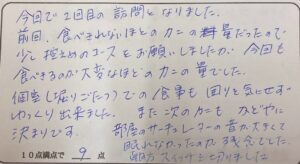 今回で2回目の訪問となりました。
前回、食べきれないほどのカニの料量だったので
少し控えめのコースをお願いしましたが、今回も
食べきるのが大変なほどのカニの量でした。
個室(堀りごたつ)での食事も回りを気にせず
ゆっくり出来ました。また次のカニも みどやに
決まりです。
部屋のサーキュレーターの音が大きくて
眠れなかったのが残念でした。
スイッチを切りました
10点満点で 9 点